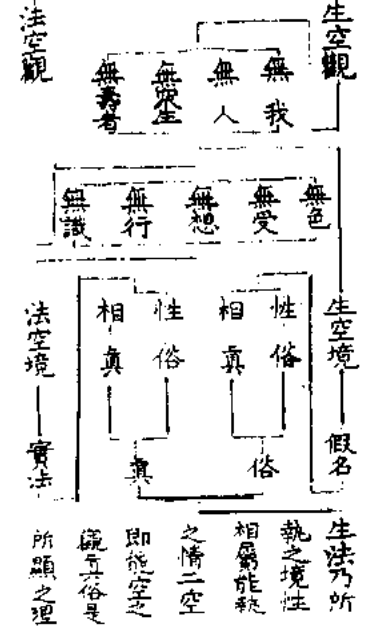 生空觀
無我
無人
無眾生
無壽者
法空觀
無色
無受
無想
無行
無識
生空境
性俗
相真
性俗
相真
法空境
假名
俗
真
實法
生法乃所
執之境性
相屬能執
之情二空
即能空之
觀真俗是
所顯之理